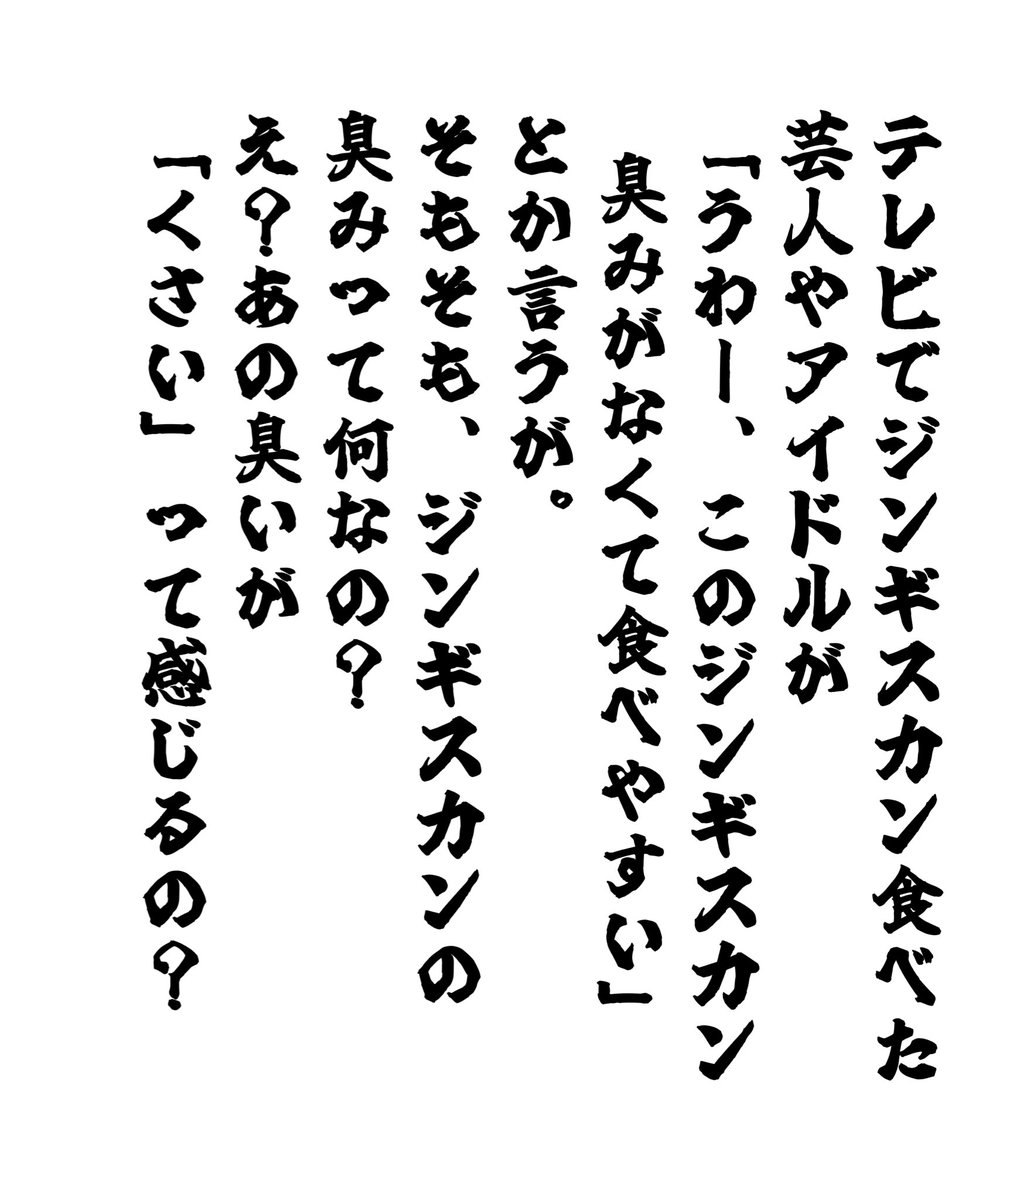 テレビでジンギスカン食べた
芸人やアイドルが
「うわー、このジンギスカン
臭みがなくて食べやすい」
とか言うが。
そもそも、ジンギスカンの
臭みって何なの?
え?あの臭いが
「くさい」って感じるの?